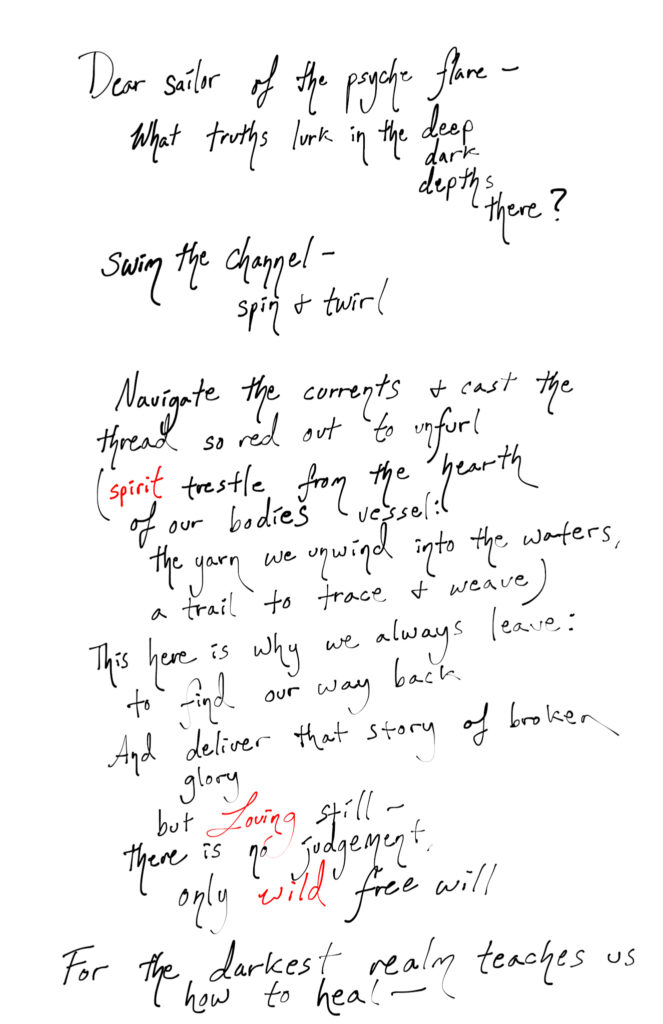 Dear sailor of the psyche flare –
What truths lurk in the deep
dark
depths
there?
Swim the channel –
spin + twirl
Navigate the currents + cast the
thread so red out to unfurl
(spirit trestle from the hearth
of our bodies vessel:
the yarn we unwind into the waters,
a trail to trace + weave)
This here is why we always leave:
to find our way back
And deliver that story of broken
glory
but Loving still –
there is no judgement,
only wild free will
For the darkest realm teaches us
how to heal –